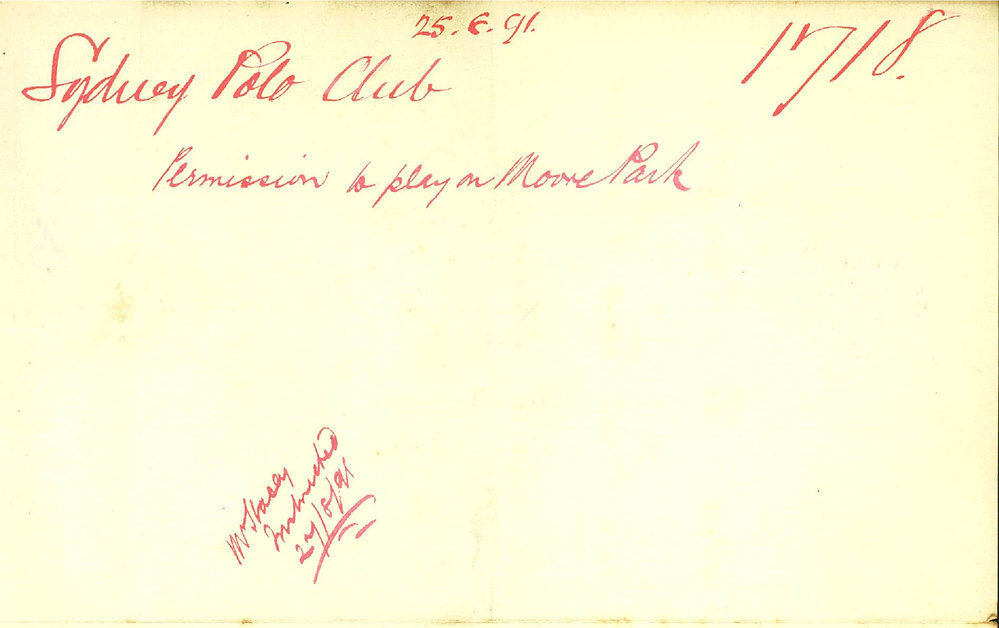 25.6.91.
1718.
Sydney Polo Club
Permission to play on Moore Park
Mr Stacey
Instructed
27/8/91